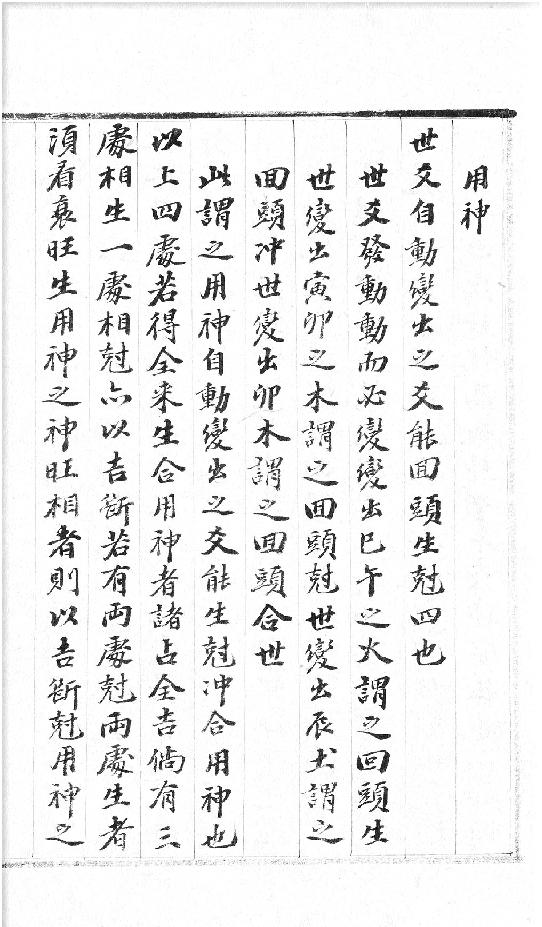 用神
世爻自動變出之爻能回頭生尅四也
世爻發動動而必變變出巳午之火謂之回頭生
世變出寅卯之木謂之回頭尅世變出辰土謂之
回頭冲世變出卯木謂之回頭合世
此謂之用神自動變出之爻能生尅冲合用神也
以上四處若得全来生合用神者諸占全吉倘有三
處相生一處相尅亦以吉斷若有両處尅両處生者
須看衰旺生用神之神旺相者則以吉斷尅用神之